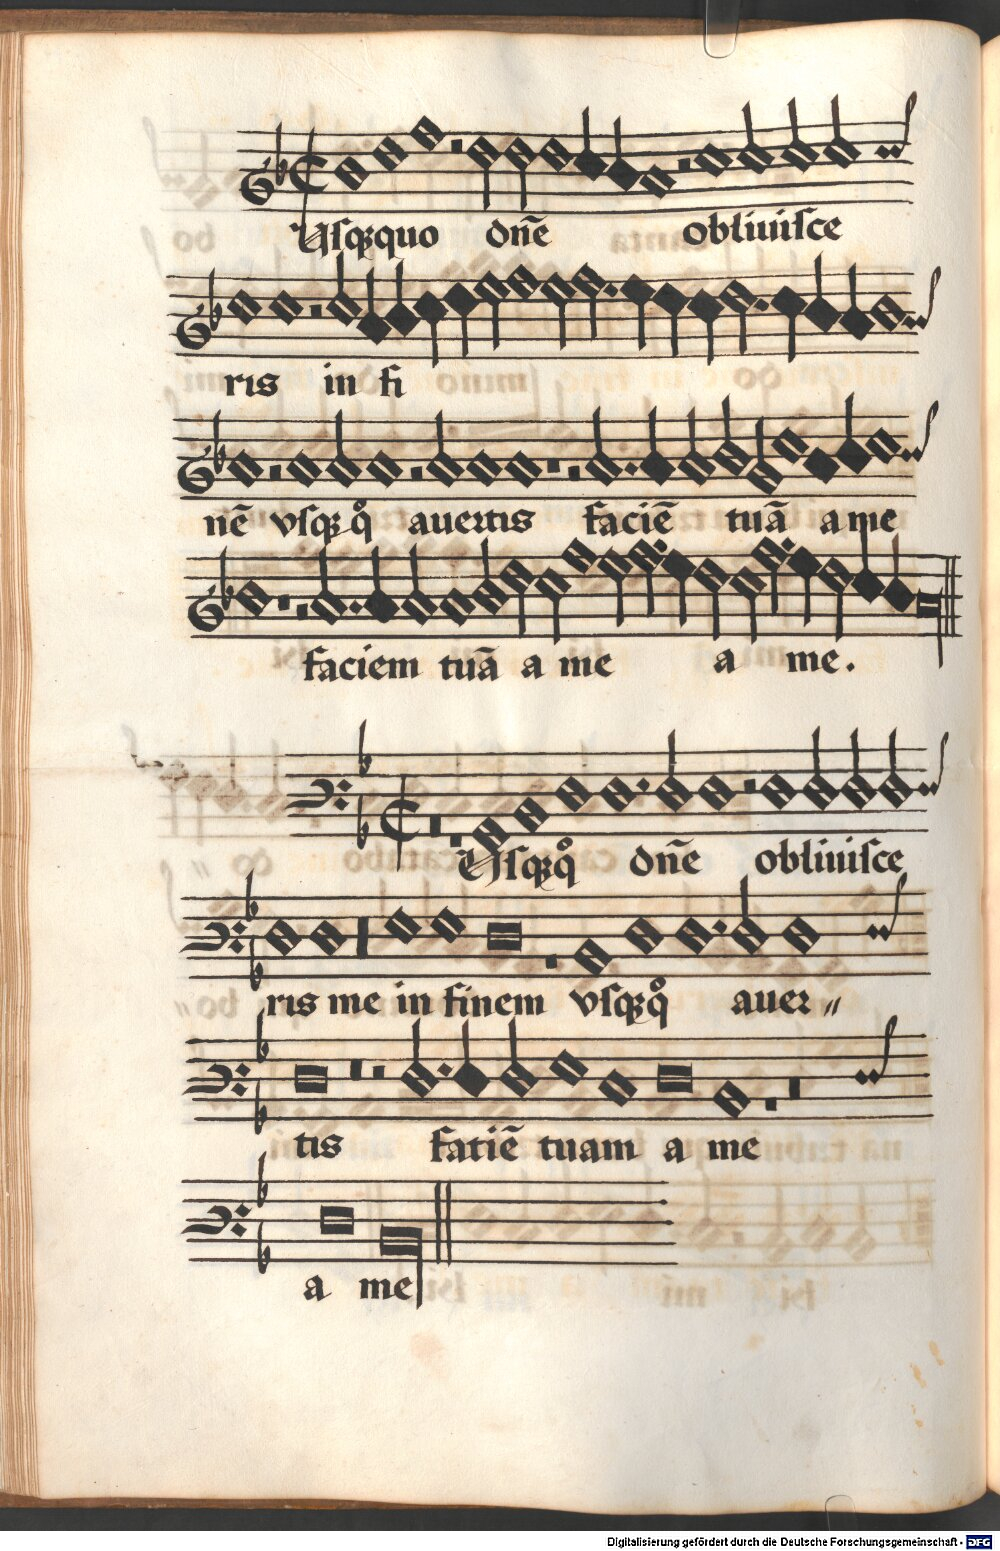 Vsqꝫquo dn̄e obliuisce
ris in fi
nē vsqꝫ qͦ auertis faciē tuā a me
faciem tuā a me a me.
Vsqꝫqͦ dn̄e obliuisce
ris me in finem vsqꝫqͦ auer〃
tis fatiē tuam a me
a me
Digitalisierung gefördert durch die Deutsche Forschungsgemeinschaft - DFG